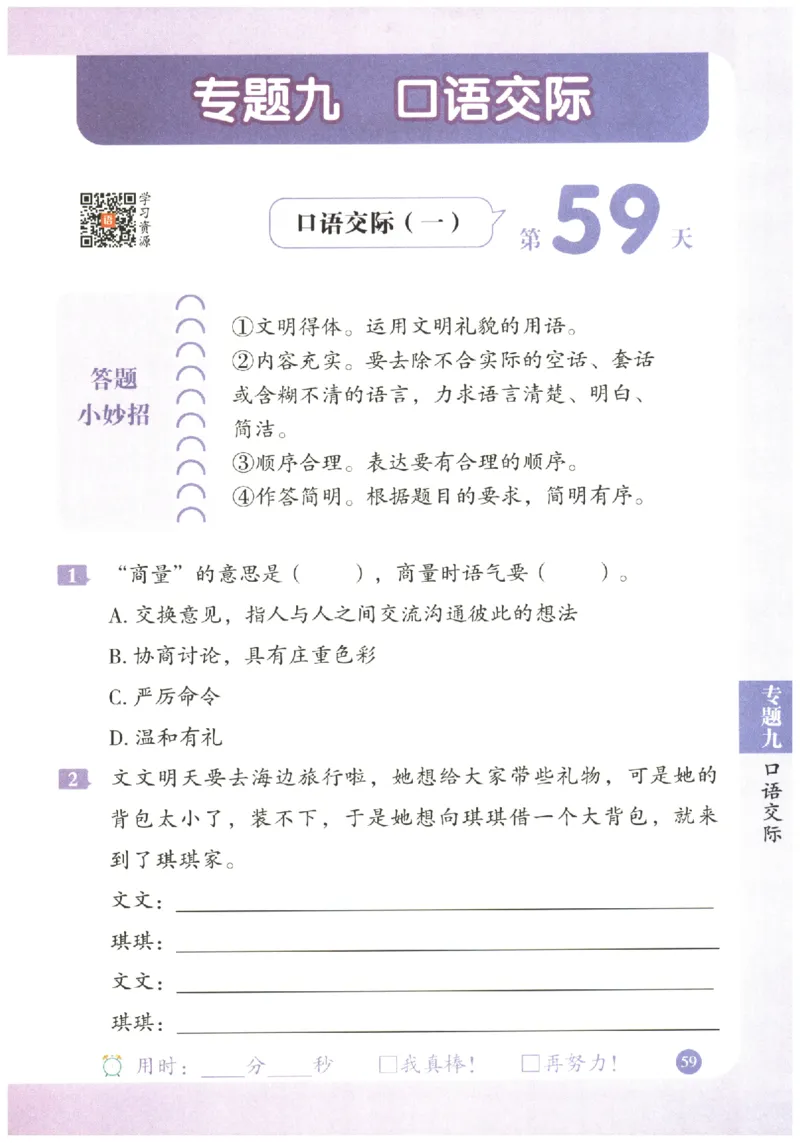 专题九 口语交际
学习资源
口语交际（一）
第59天
答题
小妙招
①文明得体。运用文明礼貌的用语。
②内容充实。要去除不合实际的空话、套话
或含糊不清的语言，力求语言清楚、明白、
简洁。
③顺序合理。表达要有合理的顺序。
④作答简明。根据题目的要求，简明有序。
1 “商量”的意思是（ ），商量时语气要（ ）。
A. 交换意见，指人与人之间交流沟通彼此的想法
B. 协商讨论，具有庄重色彩
C. 严厉命令
D. 温和有礼
2 文文明天要去海边旅行啦，她想给大家带些礼物，可是她的
背包太小了，装不下，于是她想向琪琪借一个大背包，就来
到了琪琪家。
文文：
琪琪：
文文：
琪琪：
用时：____分____秒 □我真棒！ □再努力！
59
专题九
口语交际